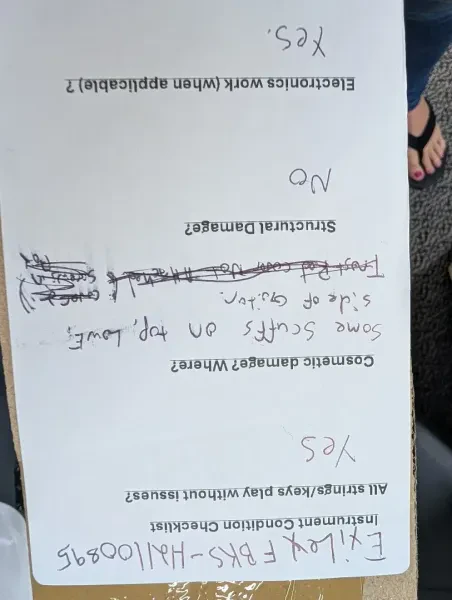 Exilex FBKS-H21100895
Instrument Condition Checklist
All strings/keys play without issues?
Yes
Cosmetic damage? Where?
Some scuffs on top, Lower
side of Guitar.
Structural Damage?
No
Electronics work (when applicable)?
Yes.